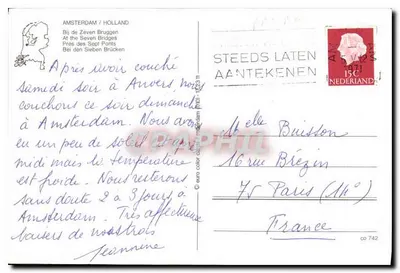 AMSTERDAM / HOLLAND
Bij de Zeven Bruggen
At the Seven Bridges
Près des Sept Ponts
Bei den Sieben Brücken
Après avoir couché
samedi soir à Anvers, nous
couchons ce soir dimanche
à Amsterdam. Nous avons
eu un peu de soleil
midi mais la température
est froide. Nous resterons
sans doute 2 à 3 jours à
Amsterdam. Très affectueux
baisers de nous trois
Jeannine
STEEDS LATEN
AANTEKENEN
1971
15c
NEDERLAND
Melle Buisson
16 rue Brézin
75 Paris (14e)
France
co 742